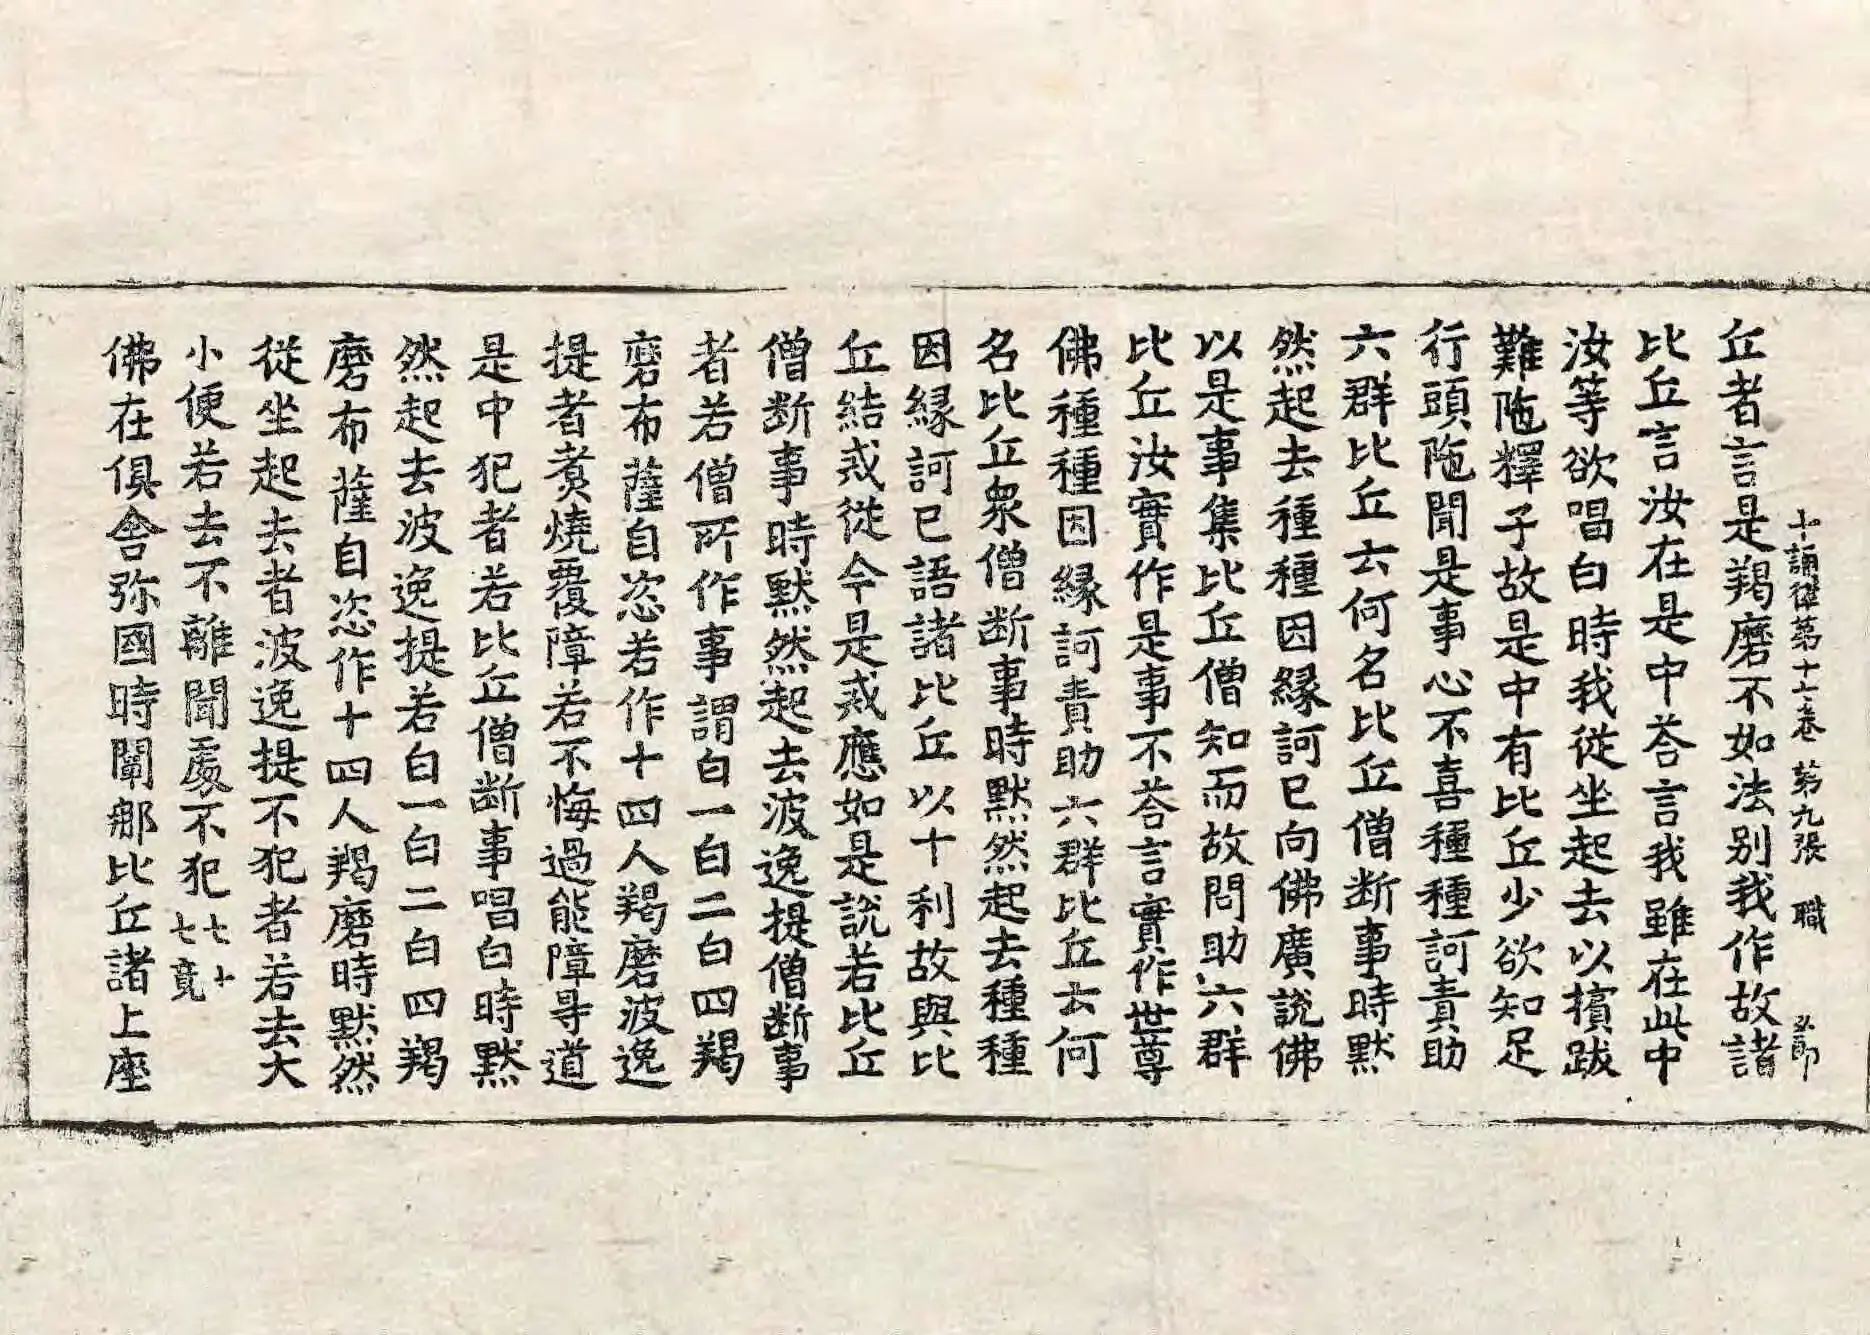 十誦律第十七卷 第九張 職
丘者言是羯磨不如法別我作故諸
比丘言汝在是中荅言我雖在此中
汝等欲唱白時我從坐起去以擯跋
難陁釋子故是中有比丘少欲知足
行頭陁聞是事心不喜種種訶責助
六群比丘云何名比丘僧断事時默
然起去種種因緣訶已向佛廣說佛
以是事集比丘僧知而故問助六群
比丘汝實作是事不荅言實作世尊
佛種種因緣訶責助六群比丘云何
名比丘衆僧断事時默然起去種種
因緣訶已語諸比丘以十利故與比
丘結戒從今是戒應如是說若比丘
僧断事時默然起去波逸提僧断事
者若僧所作事謂白一白二白四羯
磨布薩自恣若作十四人羯磨波逸
提者煑燒覆障若不悔過能障㝵道
是中犯者若比丘僧断事唱白時默
然起去波逸提若白一白二白四羯
磨布薩自恣作十四人羯磨時默然
從坐起去者波逸提不犯者若去大
小便若去不離聞處不犯七十七竟
佛在俱舍弥國時闡那比丘諸上座